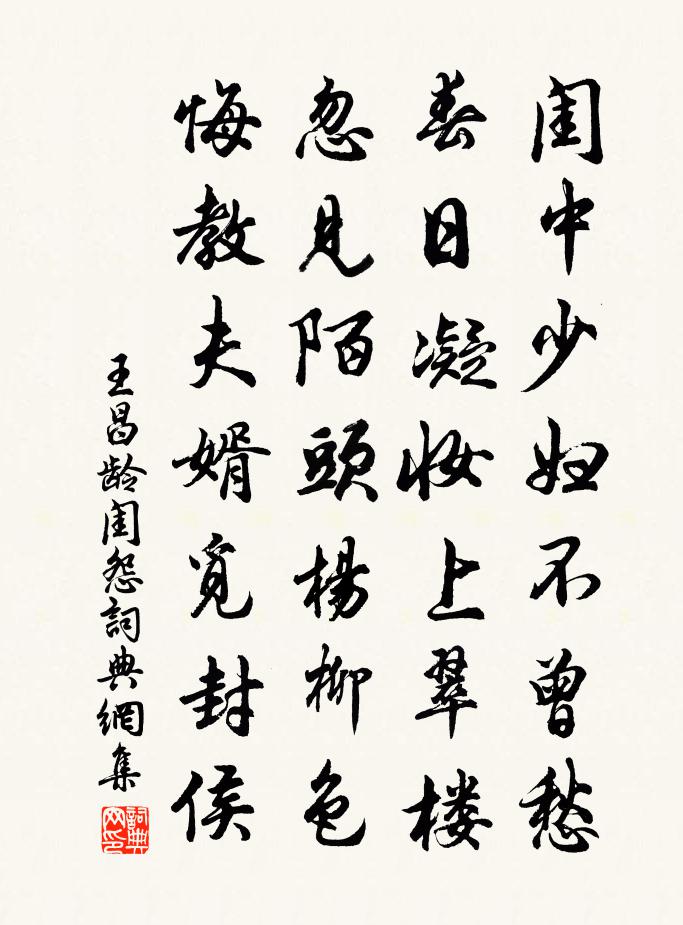 闺中少妇不曾愁
春日凝妆上翠楼
忽見陌頭楊柳色
悔教夫婿覓封侯
王昌龄闺怨詞典網集
詞典网印